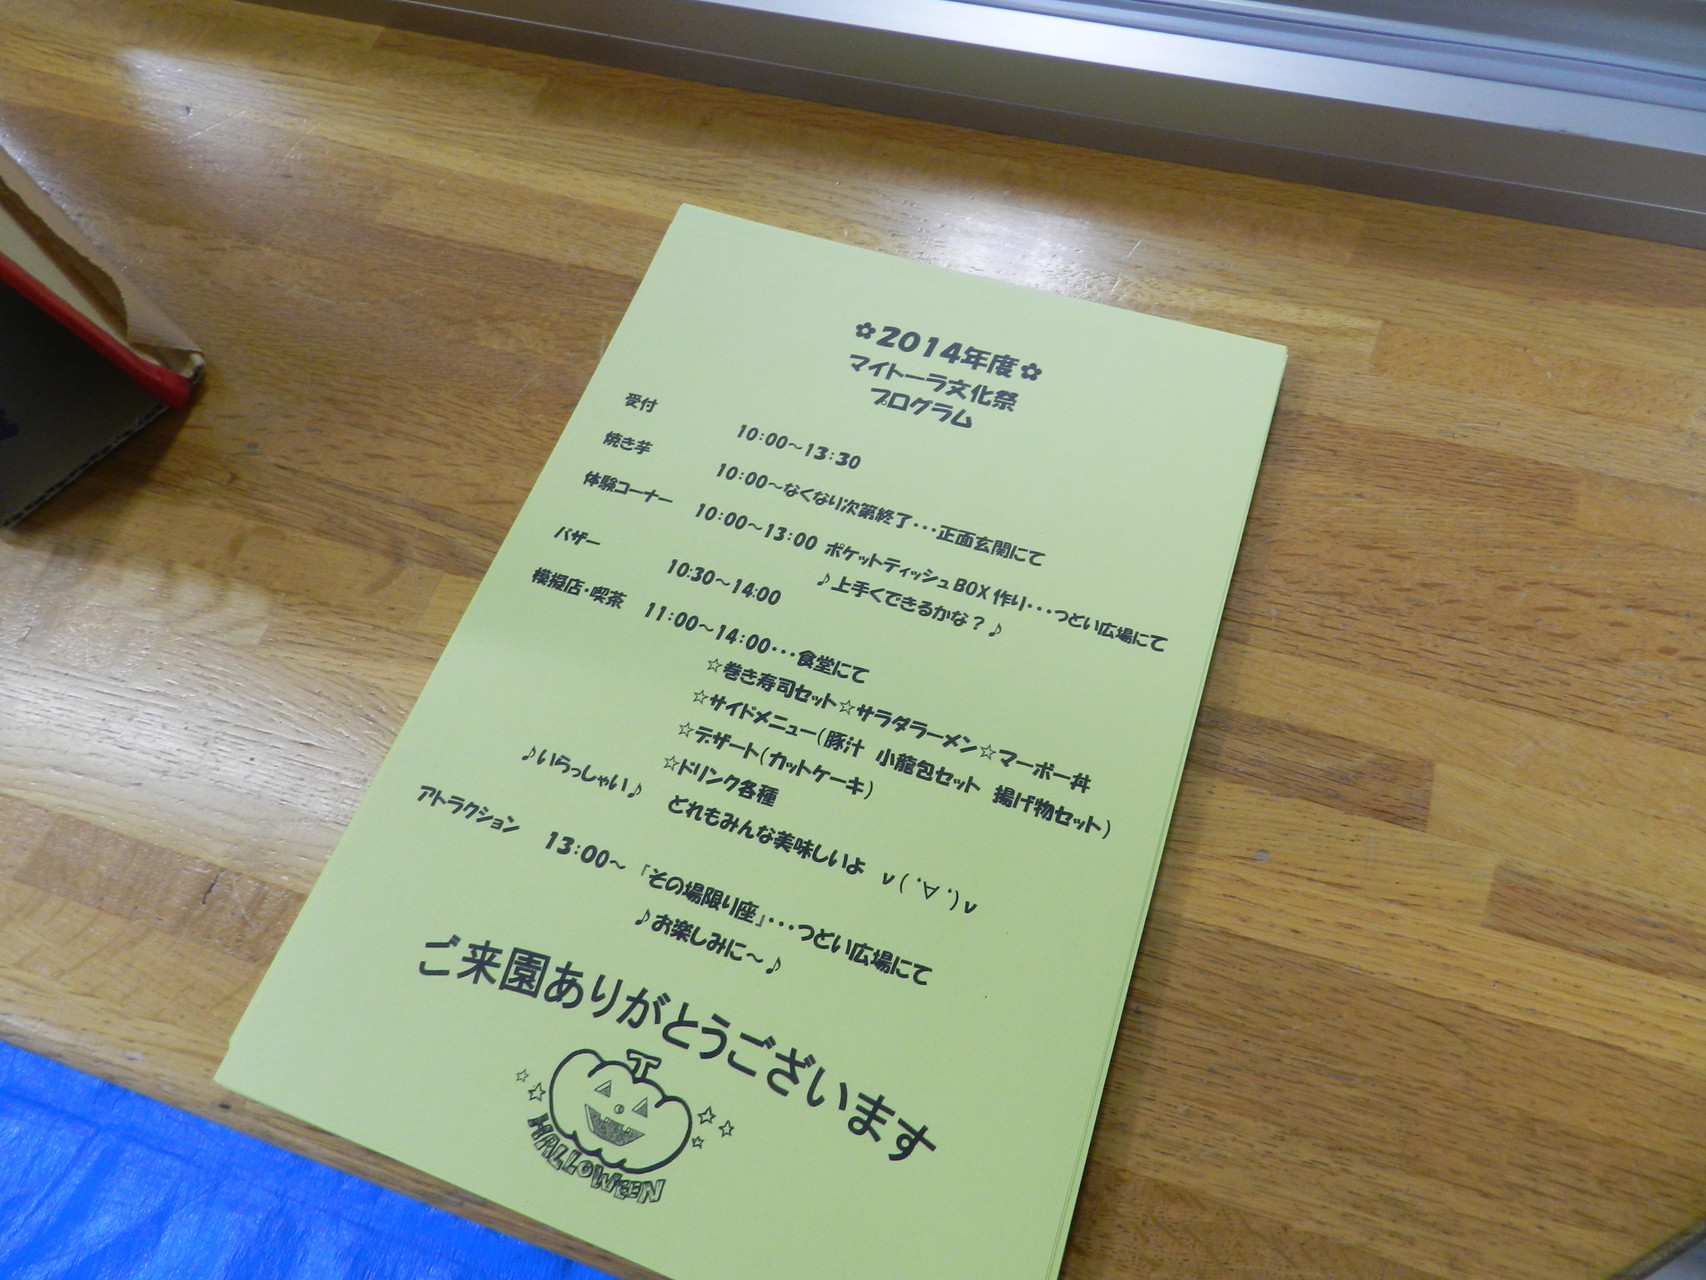 ✿2014年度✿
マイトーラ文化祭
プログラム
受付 10:00～13:30
焼き芋 10:00～なくなり次第終了･･･正面玄関にて
体験コーナー 10:00～13:00 ポケットティッシュBOX作り･･･つどい広場にて
♪上手くできるかな？♪
バザー 10:30～14:00
模擬店・喫茶 11:00～14:00･･･食堂にて
☆巻き寿司セット☆サラダラーメン☆マーボー丼
☆サイドメニュー(豚汁 小龍包セット 揚げ物セット)
☆デザート(カットケーキ)
☆ドリンク各種
♪いらっしゃい♪ どれもみんな美味しいよ v( '∀' )v
アトラクション 13:00～ 「その場限り座」･･･つどい広場にて
♪お楽しみに～♪
ご来園ありがとうございます
HALLOWEEN